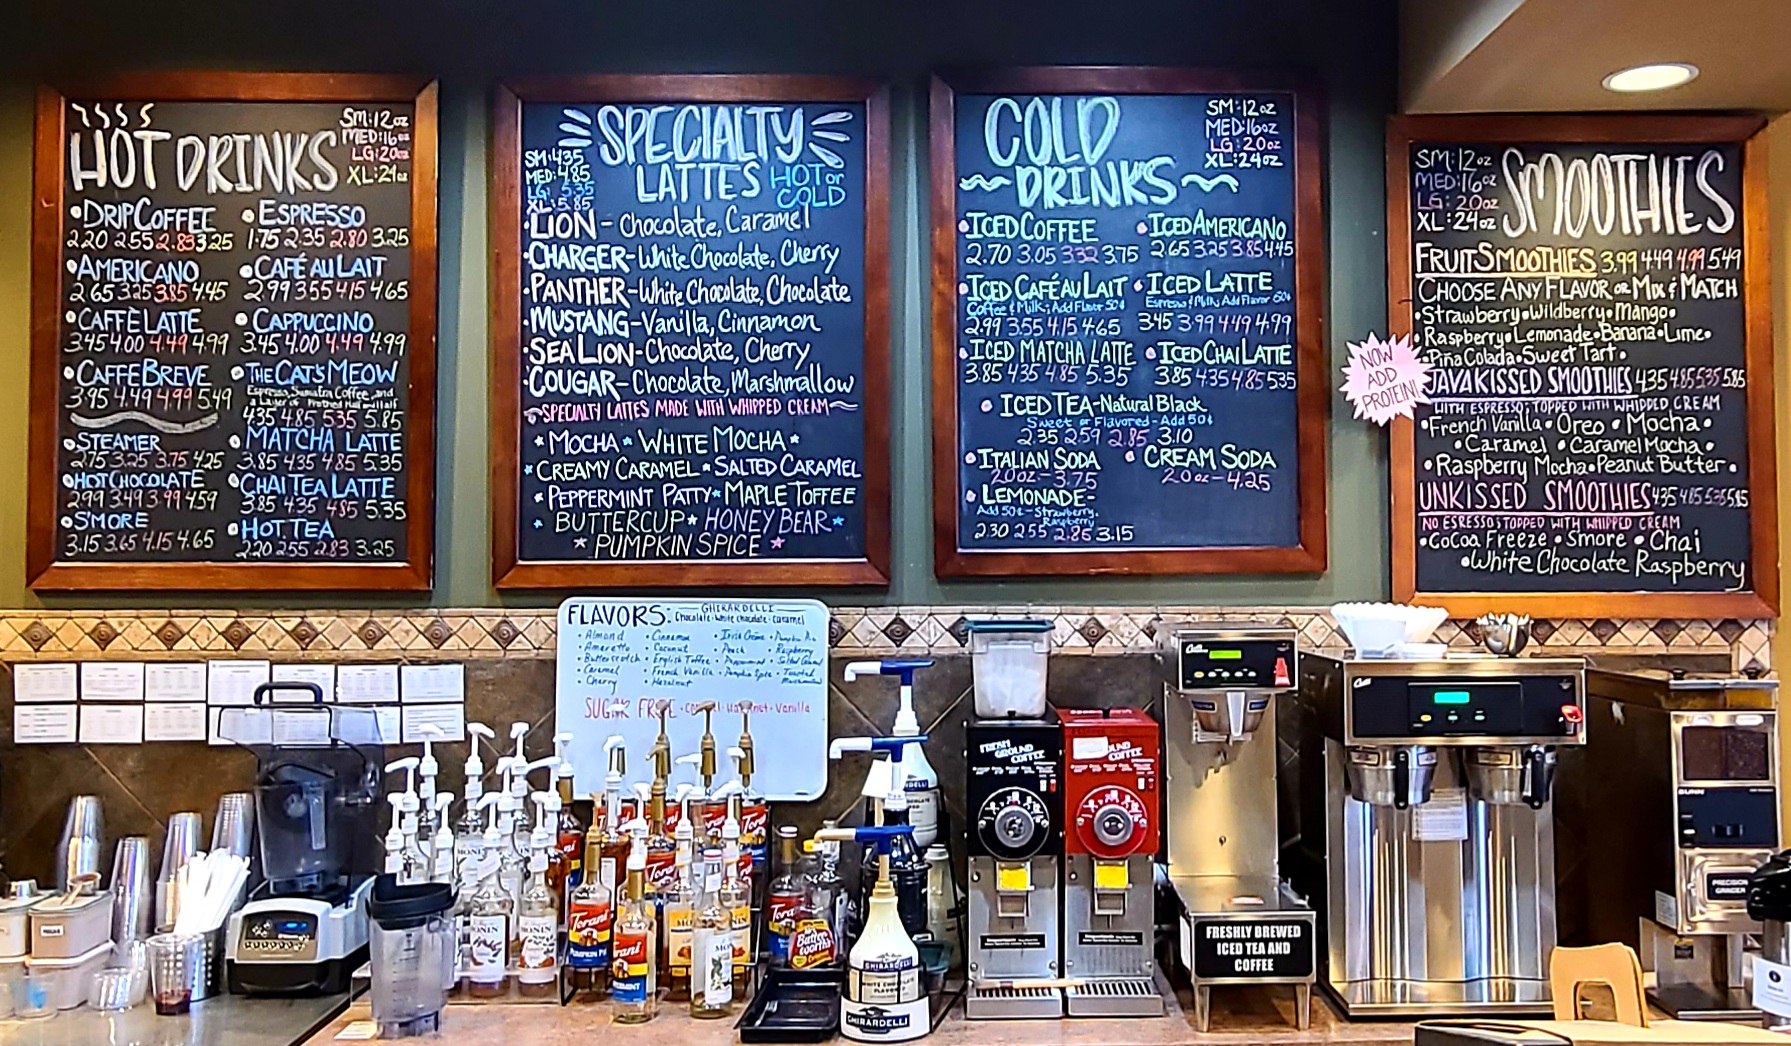 HOT DRINKS
SM:12oz
MED:16oz
LG:20oz
XL:24oz
DRIP COFFEE
2.20 2.55 2.83 3.25
AMERICANO
2.65 3.25 3.85 4.45
CAFFÈ LATTE
3.45 4.00 4.49 4.99
CAFFE BREVE
3.95 4.49 4.99 5.49
STEAMER
2.75 3.25 3.75 4.25
HOT CHOCOLATE
2.99 3.49 3.99 4.59
S'MORE
3.15 3.65 4.15 4.65
ESPRESSO
1.75 2.35 2.80 3.25
CAFÉ AU LAIT
2.99 3.55 4.15 4.65
CAPPUCCINO
3.45 4.00 4.49 4.99
THE CAT'S MEOW
Espresso, Sumatra Coffee, and
a Layer of Frothed Half and half
4.35 4.85 5.35 5.85
MATCHA LATTE
3.85 4.35 4.85 5.35
CHAI TEA LATTE
3.85 4.35 4.85 5.35
HOT TEA
2.20 2.55 2.83 3.25
SPECIALTY
LATTES HOT or COLD
SM:4.35
MED:4.85
LG: 5.35
XL: 5.85
LION - Chocolate, Caramel
CHARGER - White Chocolate, Cherry
PANTHER - White Chocolate, Chocolate
MUSTANG - Vanilla, Cinnamon
SEA LION - Chocolate, Cherry
COUGAR - Chocolate, Marshmallow
SPECIALTY LATTES MADE WITH WHIPPED CREAM
MOCHA * WHITE MOCHA *
* CREAMY CARAMEL * SALTED CARAMEL
* PEPPERMINT PATTY * MAPLE TOFFEE
* BUTTERCUP * HONEY BEAR *
* PUMPKIN SPICE *
COLD
DRINKS
SM:12oz
MED:16oz
LG:20oz
XL:24oz
ICED COFFEE
2.70 3.05 3.32 3.75
ICED AMERICANO
2.65 3.25 3.85 4.45
ICED CAFÉ AU LAIT
Coffee & Milk; Add Flavor 50¢
2.99 3.55 4.15 4.65
ICED LATTE
Espresso & Milk, Add Flavor 50¢
3.45 3.99 4.49 4.99
ICED MATCHA LATTE
3.85 4.35 4.85 5.35
ICED CHAI LATTE
3.85 4.35 4.85 5.35
ICED TEA - Natural Black
Sweet or Flavored - Add 50¢
2.35 2.59 2.85 3.10
ITALIAN SODA
20oz - 3.75
CREAM SODA
20oz - 4.25
LEMONADE -
Add 50¢ - Strawberry,
Raspberry
2.30 2.55 2.85 3.15
SM:12oz
MED:16oz
LG: 20oz
XL:24oz
SMOOTHIES
FRUIT SMOOTHIES 3.99 4.49 4.99 5.49
CHOOSE ANY FLAVOR or MIX & MATCH
Strawberry • Wildberry • Mango •
Raspberry • Lemonade • Banana • Lime •
Piña Colada • Sweet Tart •
JAVA KISSED SMOOTHIES 4.35 4.85 5.35 5.85
WITH ESPRESSO; TOPPED WITH WHIPPED CREAM
French Vanilla • Oreo • Mocha •
• Caramel • Caramel Mocha •
Raspberry Mocha • Peanut Butter •
UNKISSED SMOOTHIES 4.35 4.85 5.35 5.85
NO ESPRESSO; TOPPED WITH WHIPPED CREAM
• Cocoa Freeze • Smore • Chai
• White Chocolate Raspberry
NOW
ADD
PROTEIN!
FLAVORS:
GHIRARDELLI
Chocolate · White chocolate · Caramel
• Almond
• Amaretto
• Butterscotch
• Caramel
• Cherry
• Cinnamon
• Coconut
• English Toffee
• French Vanilla
• Hazelnut
• Irish Crème
• Peach
• Peppermint
• Pumpkin Spice
• Pumpkin Pie
• Raspberry
• Salted Caramel
• Toasted
Marshmallow
SUGAR FREE - Caramel - Hazelnut - Vanilla
FRESH
GROUND
COFFEE
GROUND
COFFEE
Curtis
Curtis
BUNN
PRECISION
GRINDER
FRESHLY BREWED
ICED TEA AND
COFFEE
Torani
PUMPKIN PIE
Torani
Torani
MONIN
MONIN
Butter
worth's
GHIRARDELLI
WHITE CHOCOLATE
FLAVORED
GHIRARDELLI